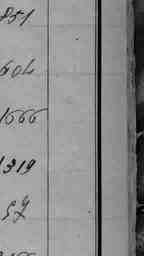 851
604
1666
1319
57